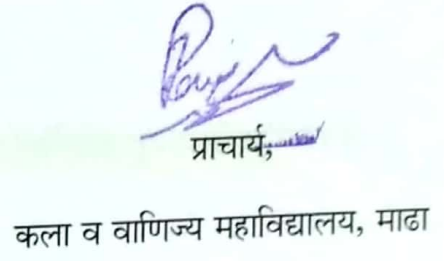 प्राचार्य,
कला व वाणिज्य महाविद्यालय, माढा